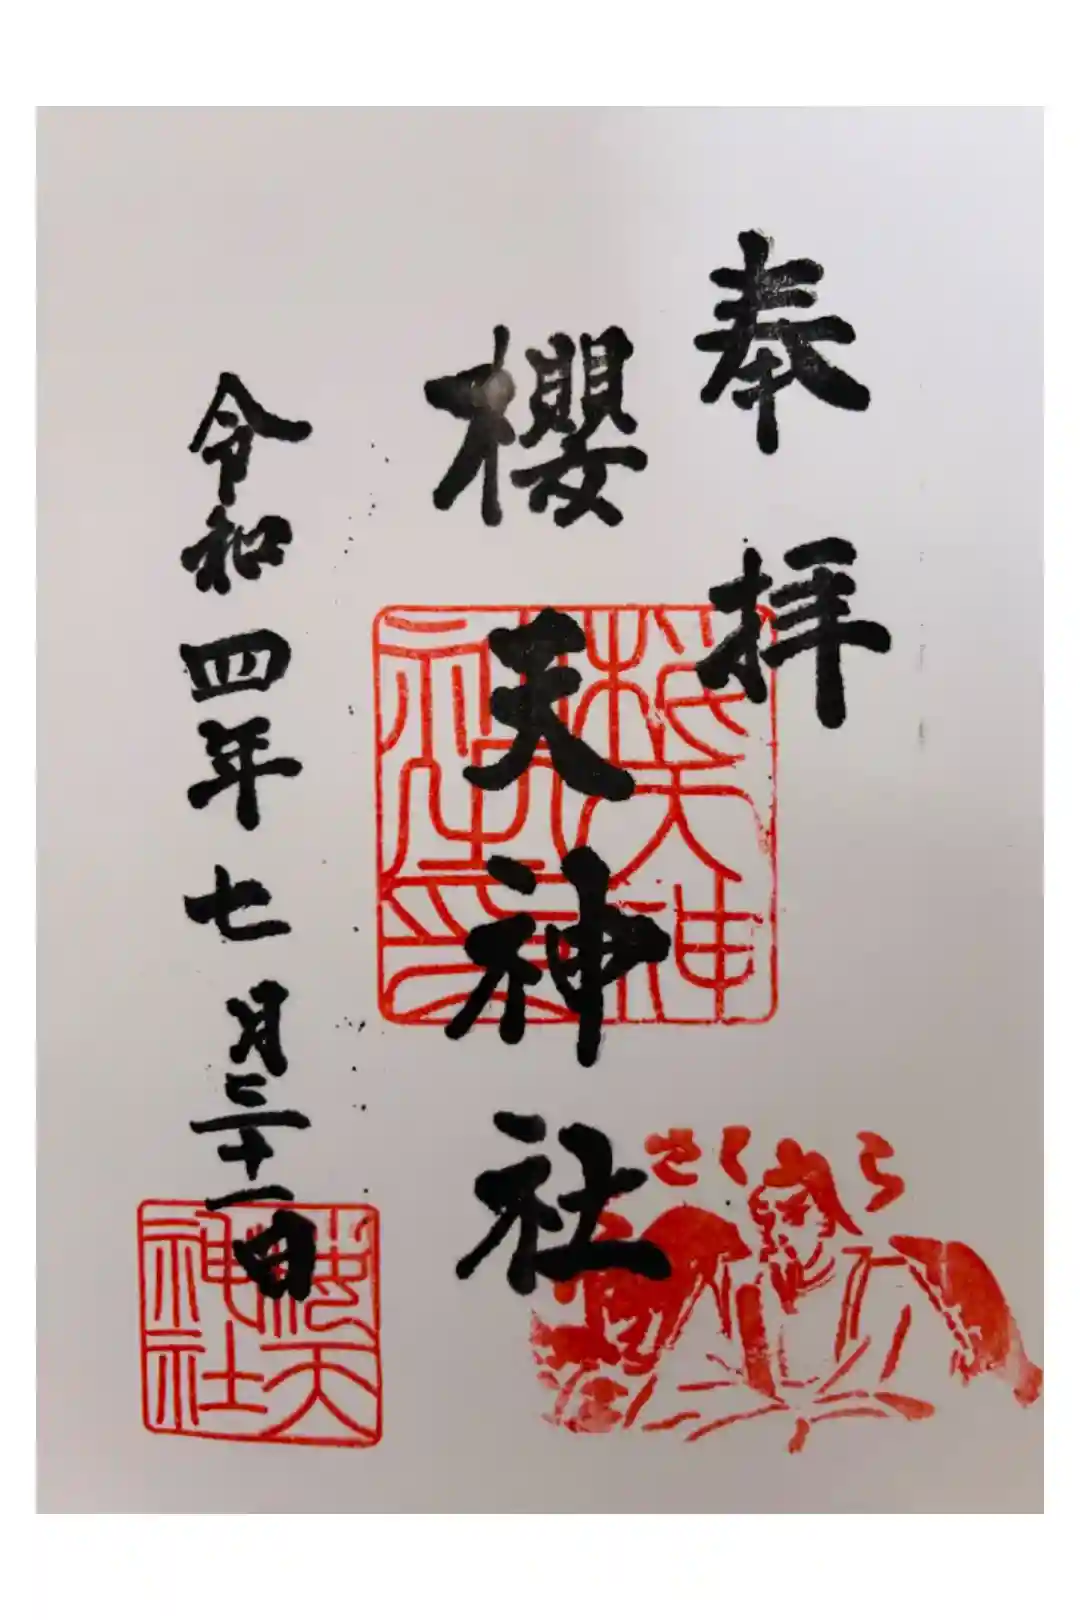 奉拝
櫻天神社
令和四年七月三十一日
桜天神社印
桜天神社
さくら